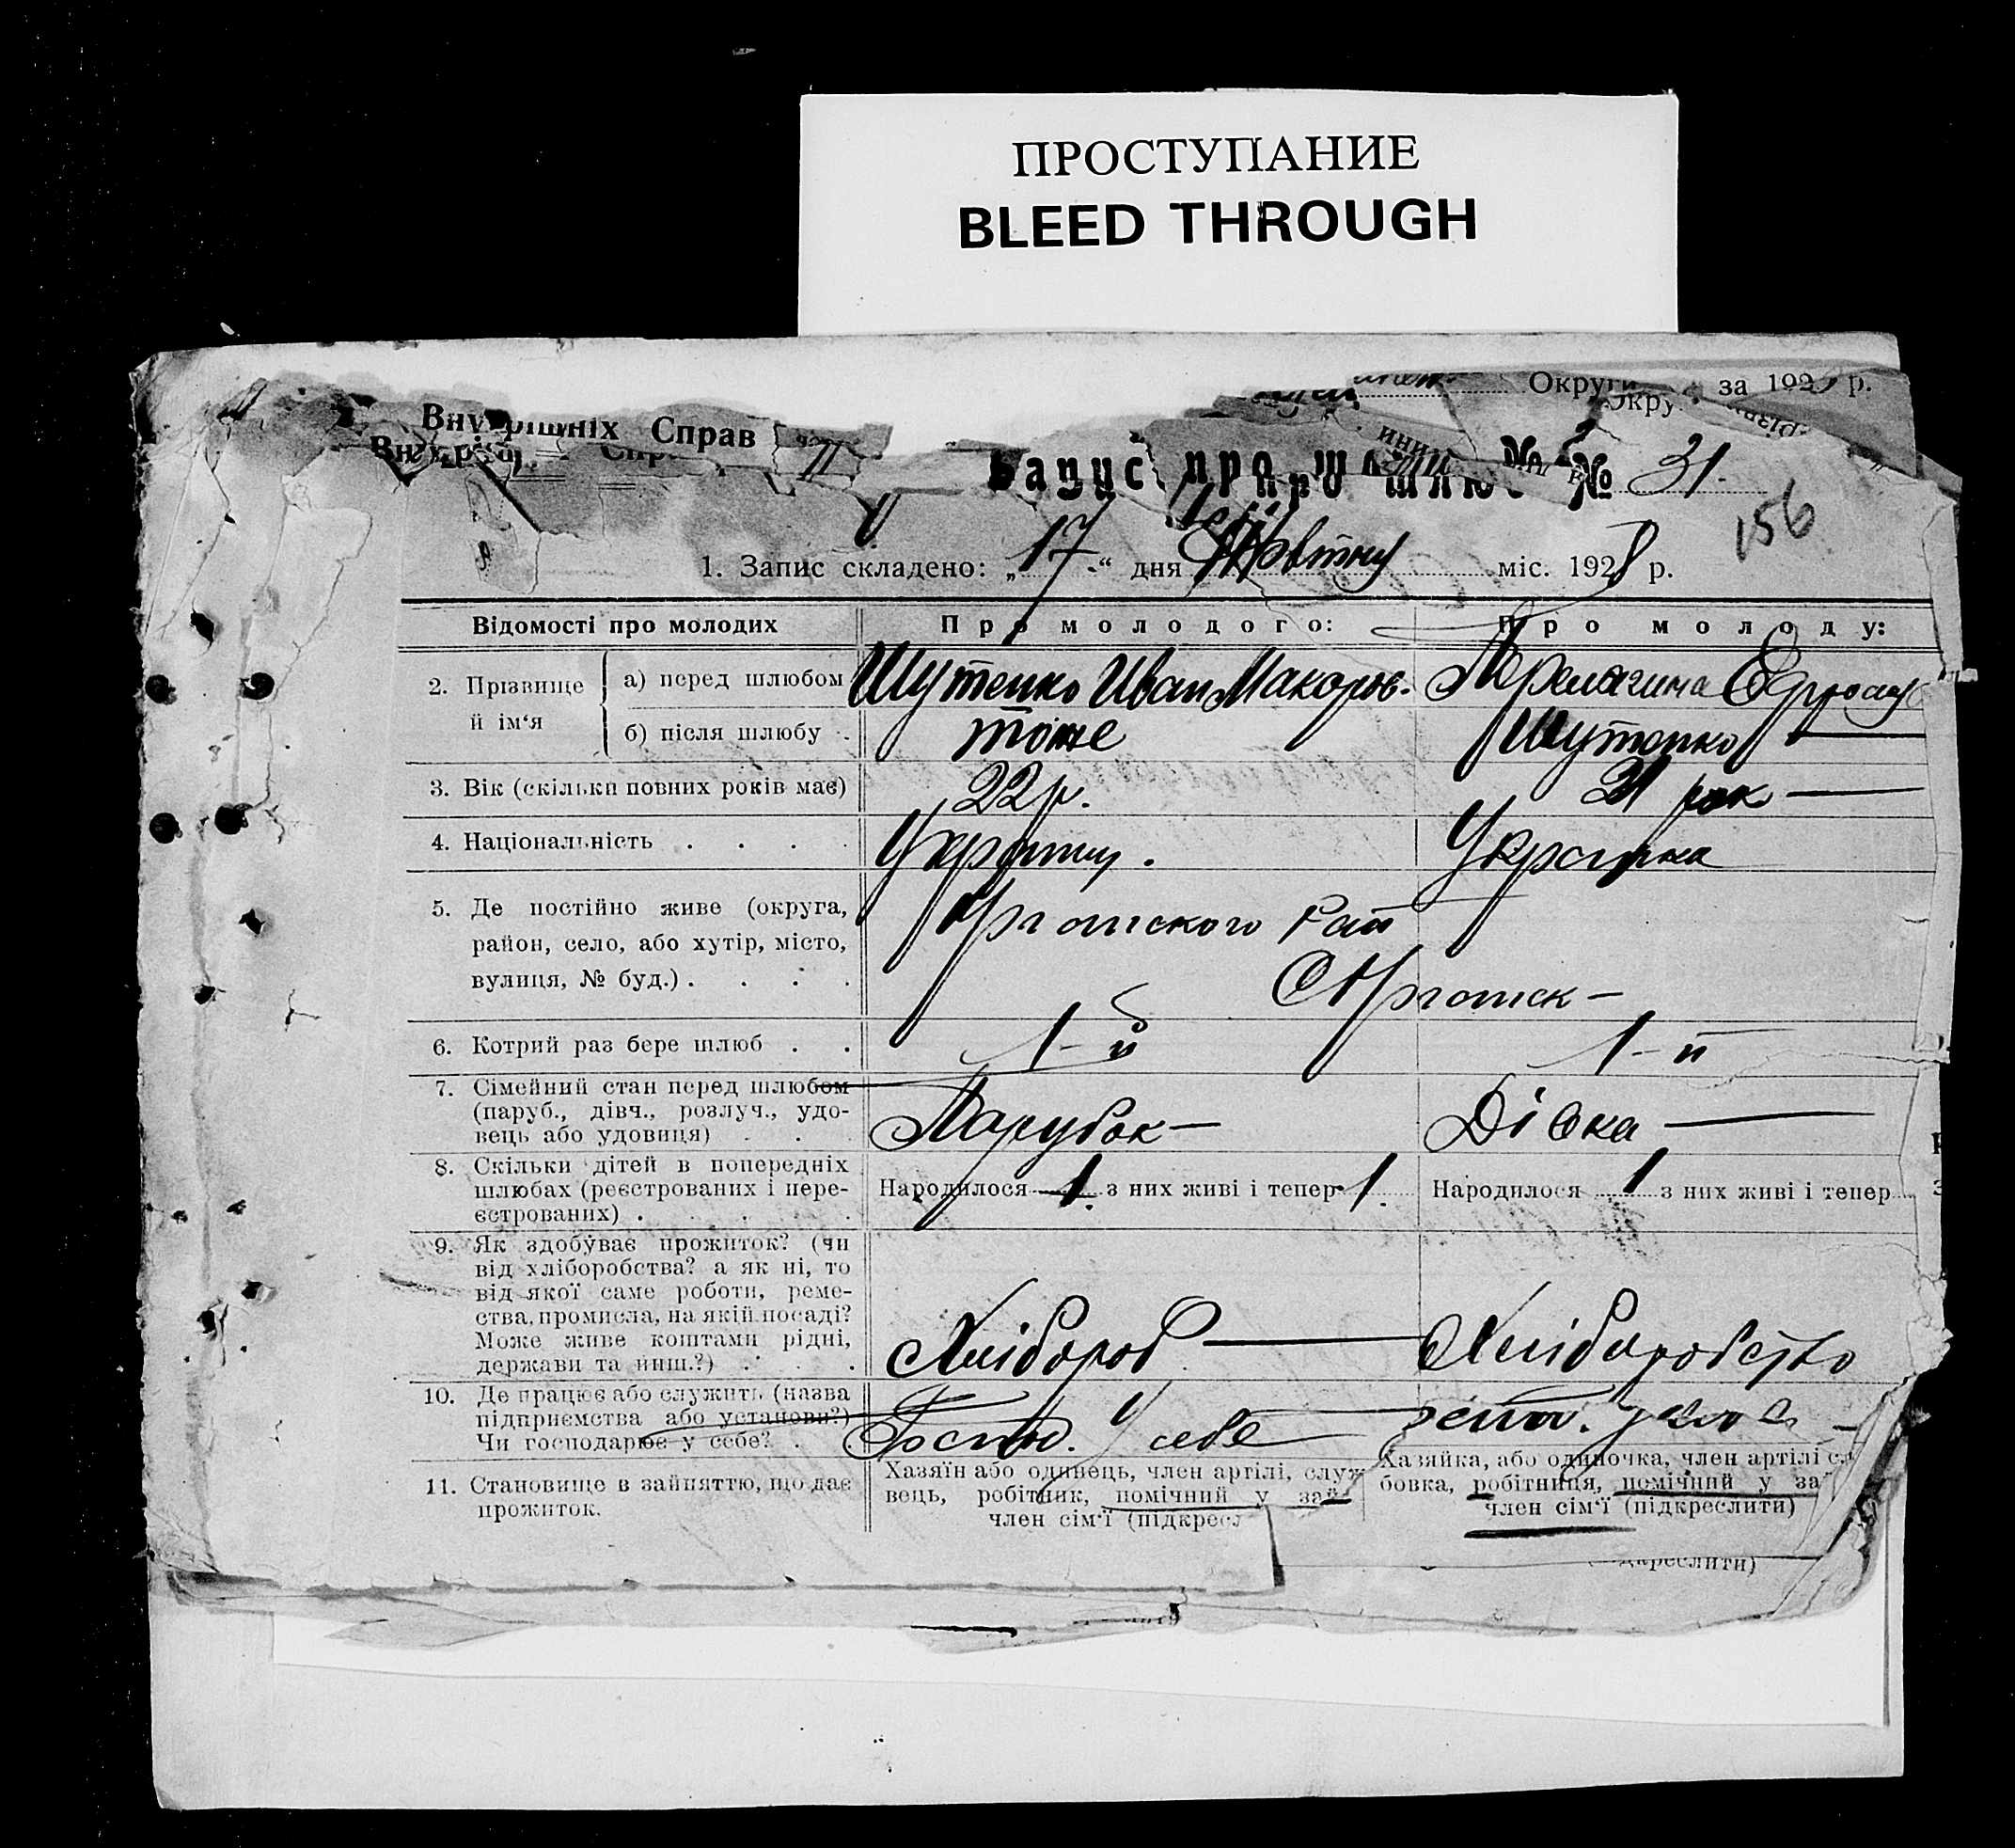 ПРОСТУПАНИЕ
BLEED THROUGH
Округи за 192 р.
Внутрішніх Справ
Запис про шлюб № 31.
156
1. Запис складено: „17.“ дня Квітня міс. 1928 р.
Відомості про молодих Про молодого: Про молоду:
2. Прізвище й ім‘я
а) перед шлюбом Шутенко Иван Макоров.
б) після шлюбу тоже Шутенко
3. Вік (скільки повних років має) 22 р. 21 рок
4. Національність Українка
5. Де постійно живе (округа,
район, село, або хутір, місто,
вулиця, № буд.)
6. Котрий раз бере шлюб 1-й 1-й
7. Сімейний стан перед шлюбом
(паруб., дівч., розлуч., удо-
вець або удовиця) Парубок Дівка
8. Скільки дітей в попередніх
шлюбах (реєстрованих і нере-
єстрованих)
Народилося 1. з них живі і тепер 1. Народилося 1 з них живі і тепер
9. Як здобуває прожиток? (чи
від хліборобства? а як ні, то
від якої саме роботи, реме-
ства, промисла, на якій посаді?
Може живе коштами рідні,
держави та йнш.?) Хлібороб Хліборобство
10. Де працює або служить (назва
підприємства або установи?)
Чи господарює у себе? Госпо. У себе
11. Становище в зайняттю, що дає
прожиток.
Хазяїн або одинець, член артілі, служ
вець, робітник, помічний у зай
член сім‘ї (підкресл
Хазяйка, або одиночка, член артілі сл
бовка, робітниця, помічний у за
член сім‘ї (підкреслити)
дкреслити)